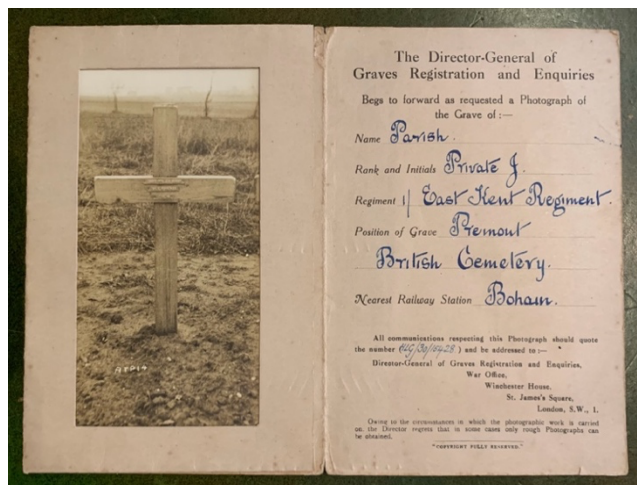 The Director-General of
Graves Registration and Enquiries
Begs to forward as requested a Photograph of
the Grave of :—
Name Parish.
Rank and Initials Private J.
Regiment 1/ East Kent Regiment.
Position of Grave Premont
British Cemetery.
Nearest Railway Station Bohain.
All communications respecting this Photograph should quote
the number ( ) and be addressed to :—
Director-General of Graves Registration and Enquiries,
War Office,
Winchester House,
St. James's Square,
London, S.W., 1.
Owing to the circumstances in which the photographic work is carried
on, the Director regrets that in some cases only rough Photographs can
be obtained.
"COPYRIGHT FULLY RESERVED."